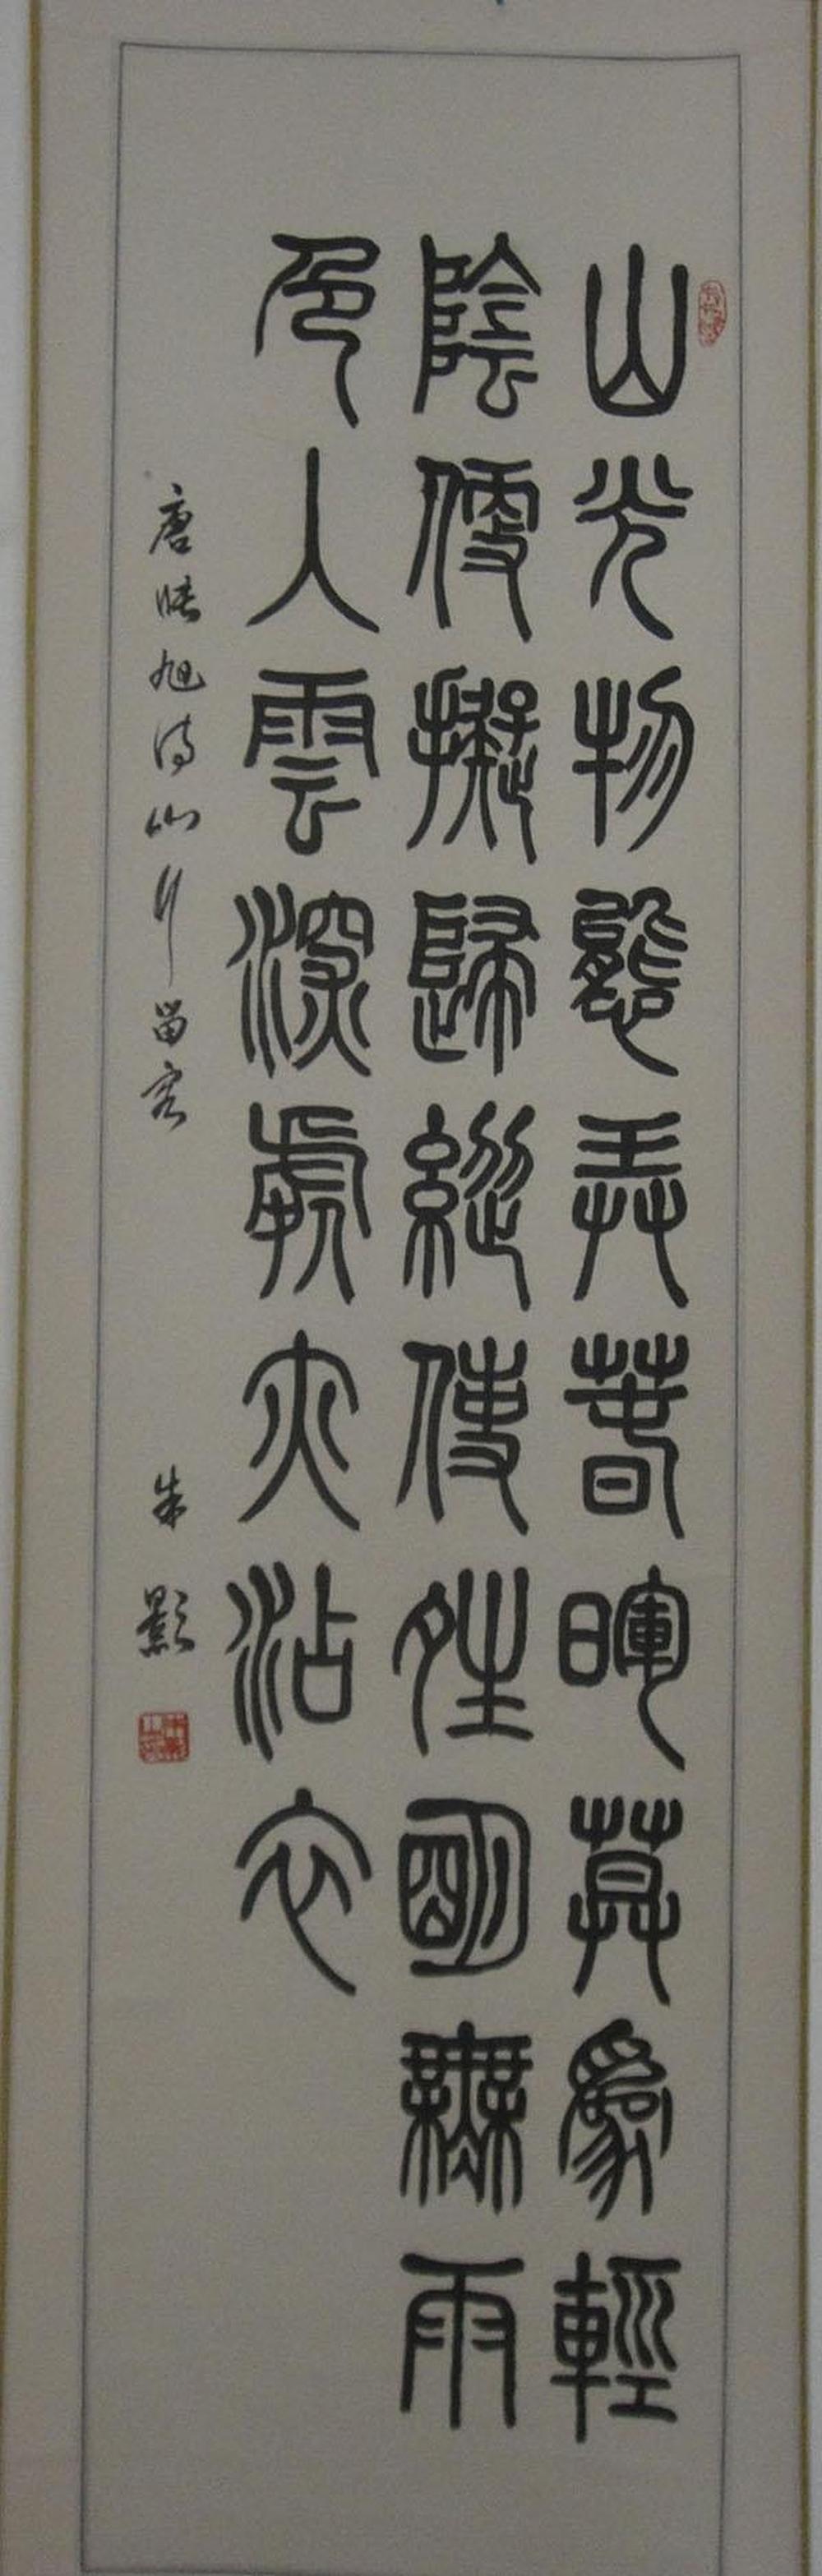 山光物態弄春暉莫為輕
陰便擬歸縱使晴明無雨
色入雲深處亦沾衣
唐張旭詩山行留客 朱影